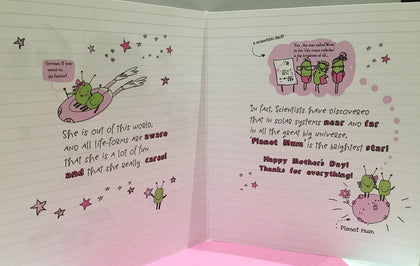 Scream if you
want to
go faster!
She is out of this world,
And all life-forms are aware
that she is a lot of fun
and that she really cares!
A scientific fact!
Yes, the one called 'Mum'
is the brightest of all...
In fact, Scientists have discovered
that in solar systems near and far
in all the great big universe,
'Planet Mum' is the brightest star!
Happy Mother's Day!
Thanks for everything!
Planet Mum